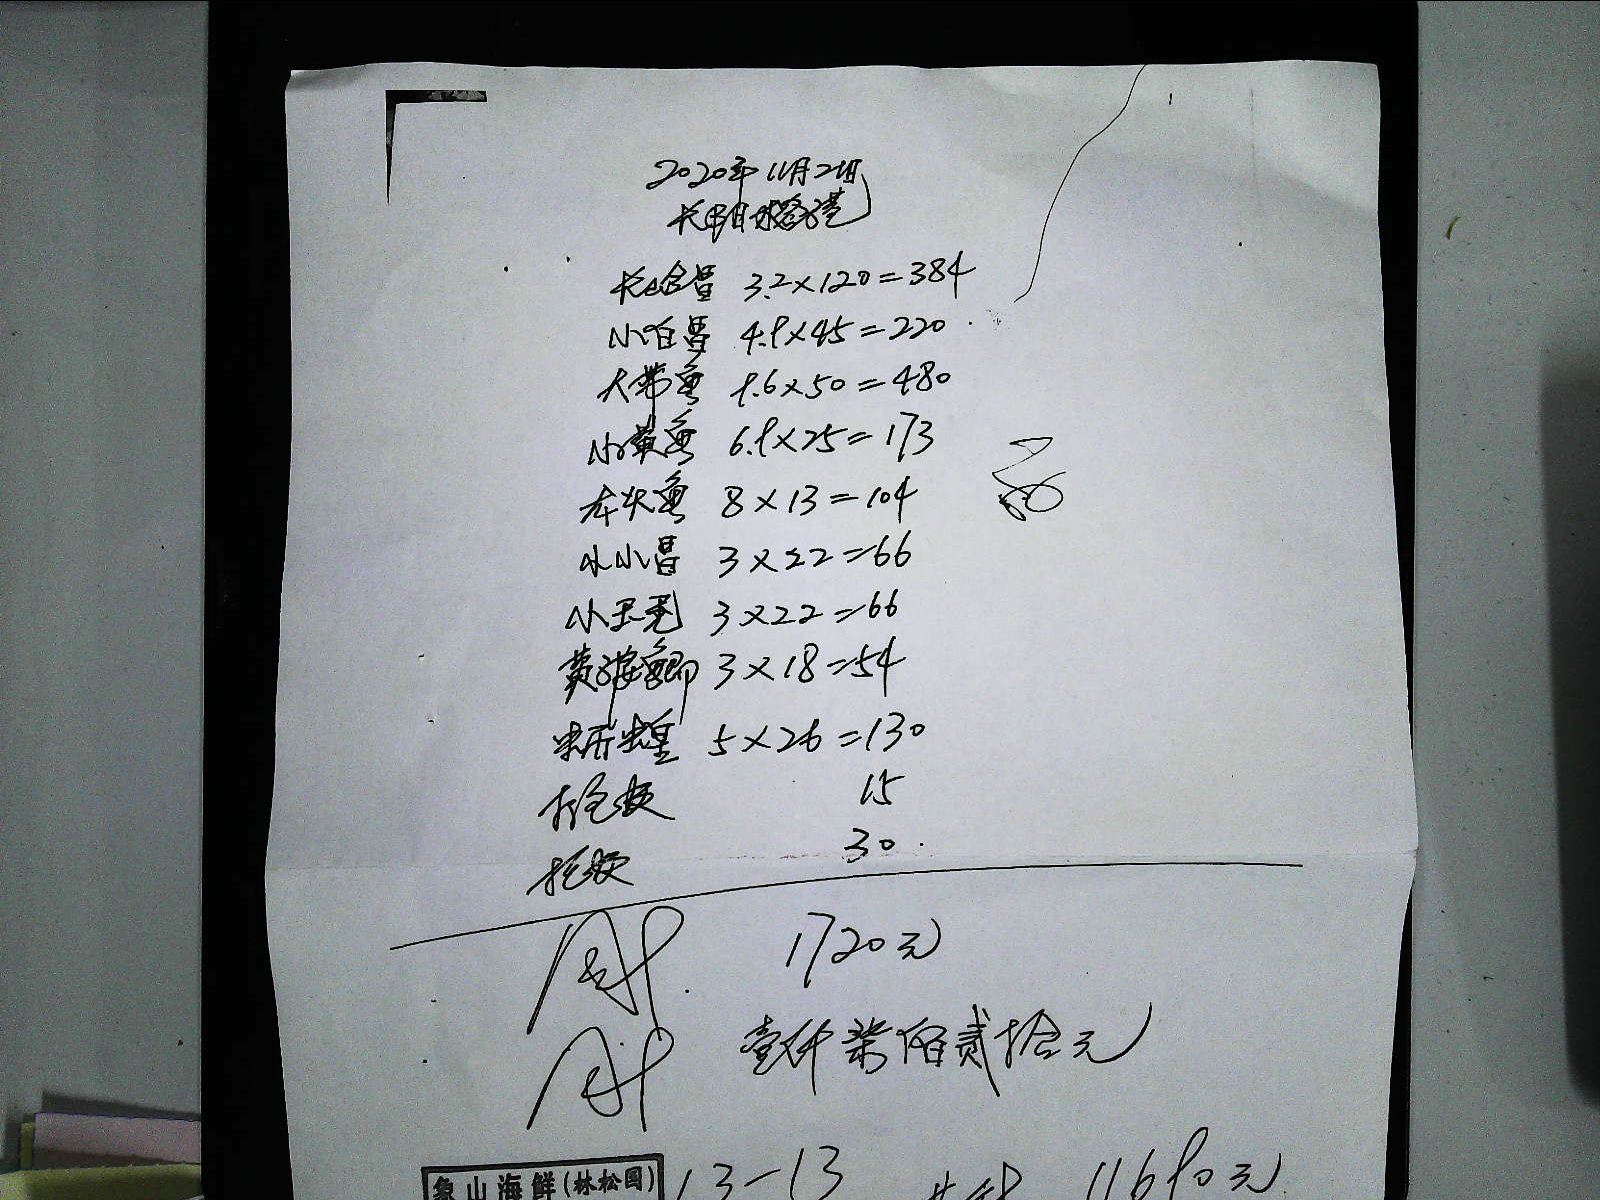 2020年11月21日
长 3.2×120=384
小白昌 4.9×45=220
大带鱼 9.6×50=480
小黄鱼 6.9×25=173
龙头鱼 8×13=104
小小昌 3×22=66
小玉秃 3×22=66
黄 3×18=54
5×26=130
打包费 15
托费 30
1720元
壹仟柒佰贰拾元
象山海鲜(林松国) 13-13 11690元